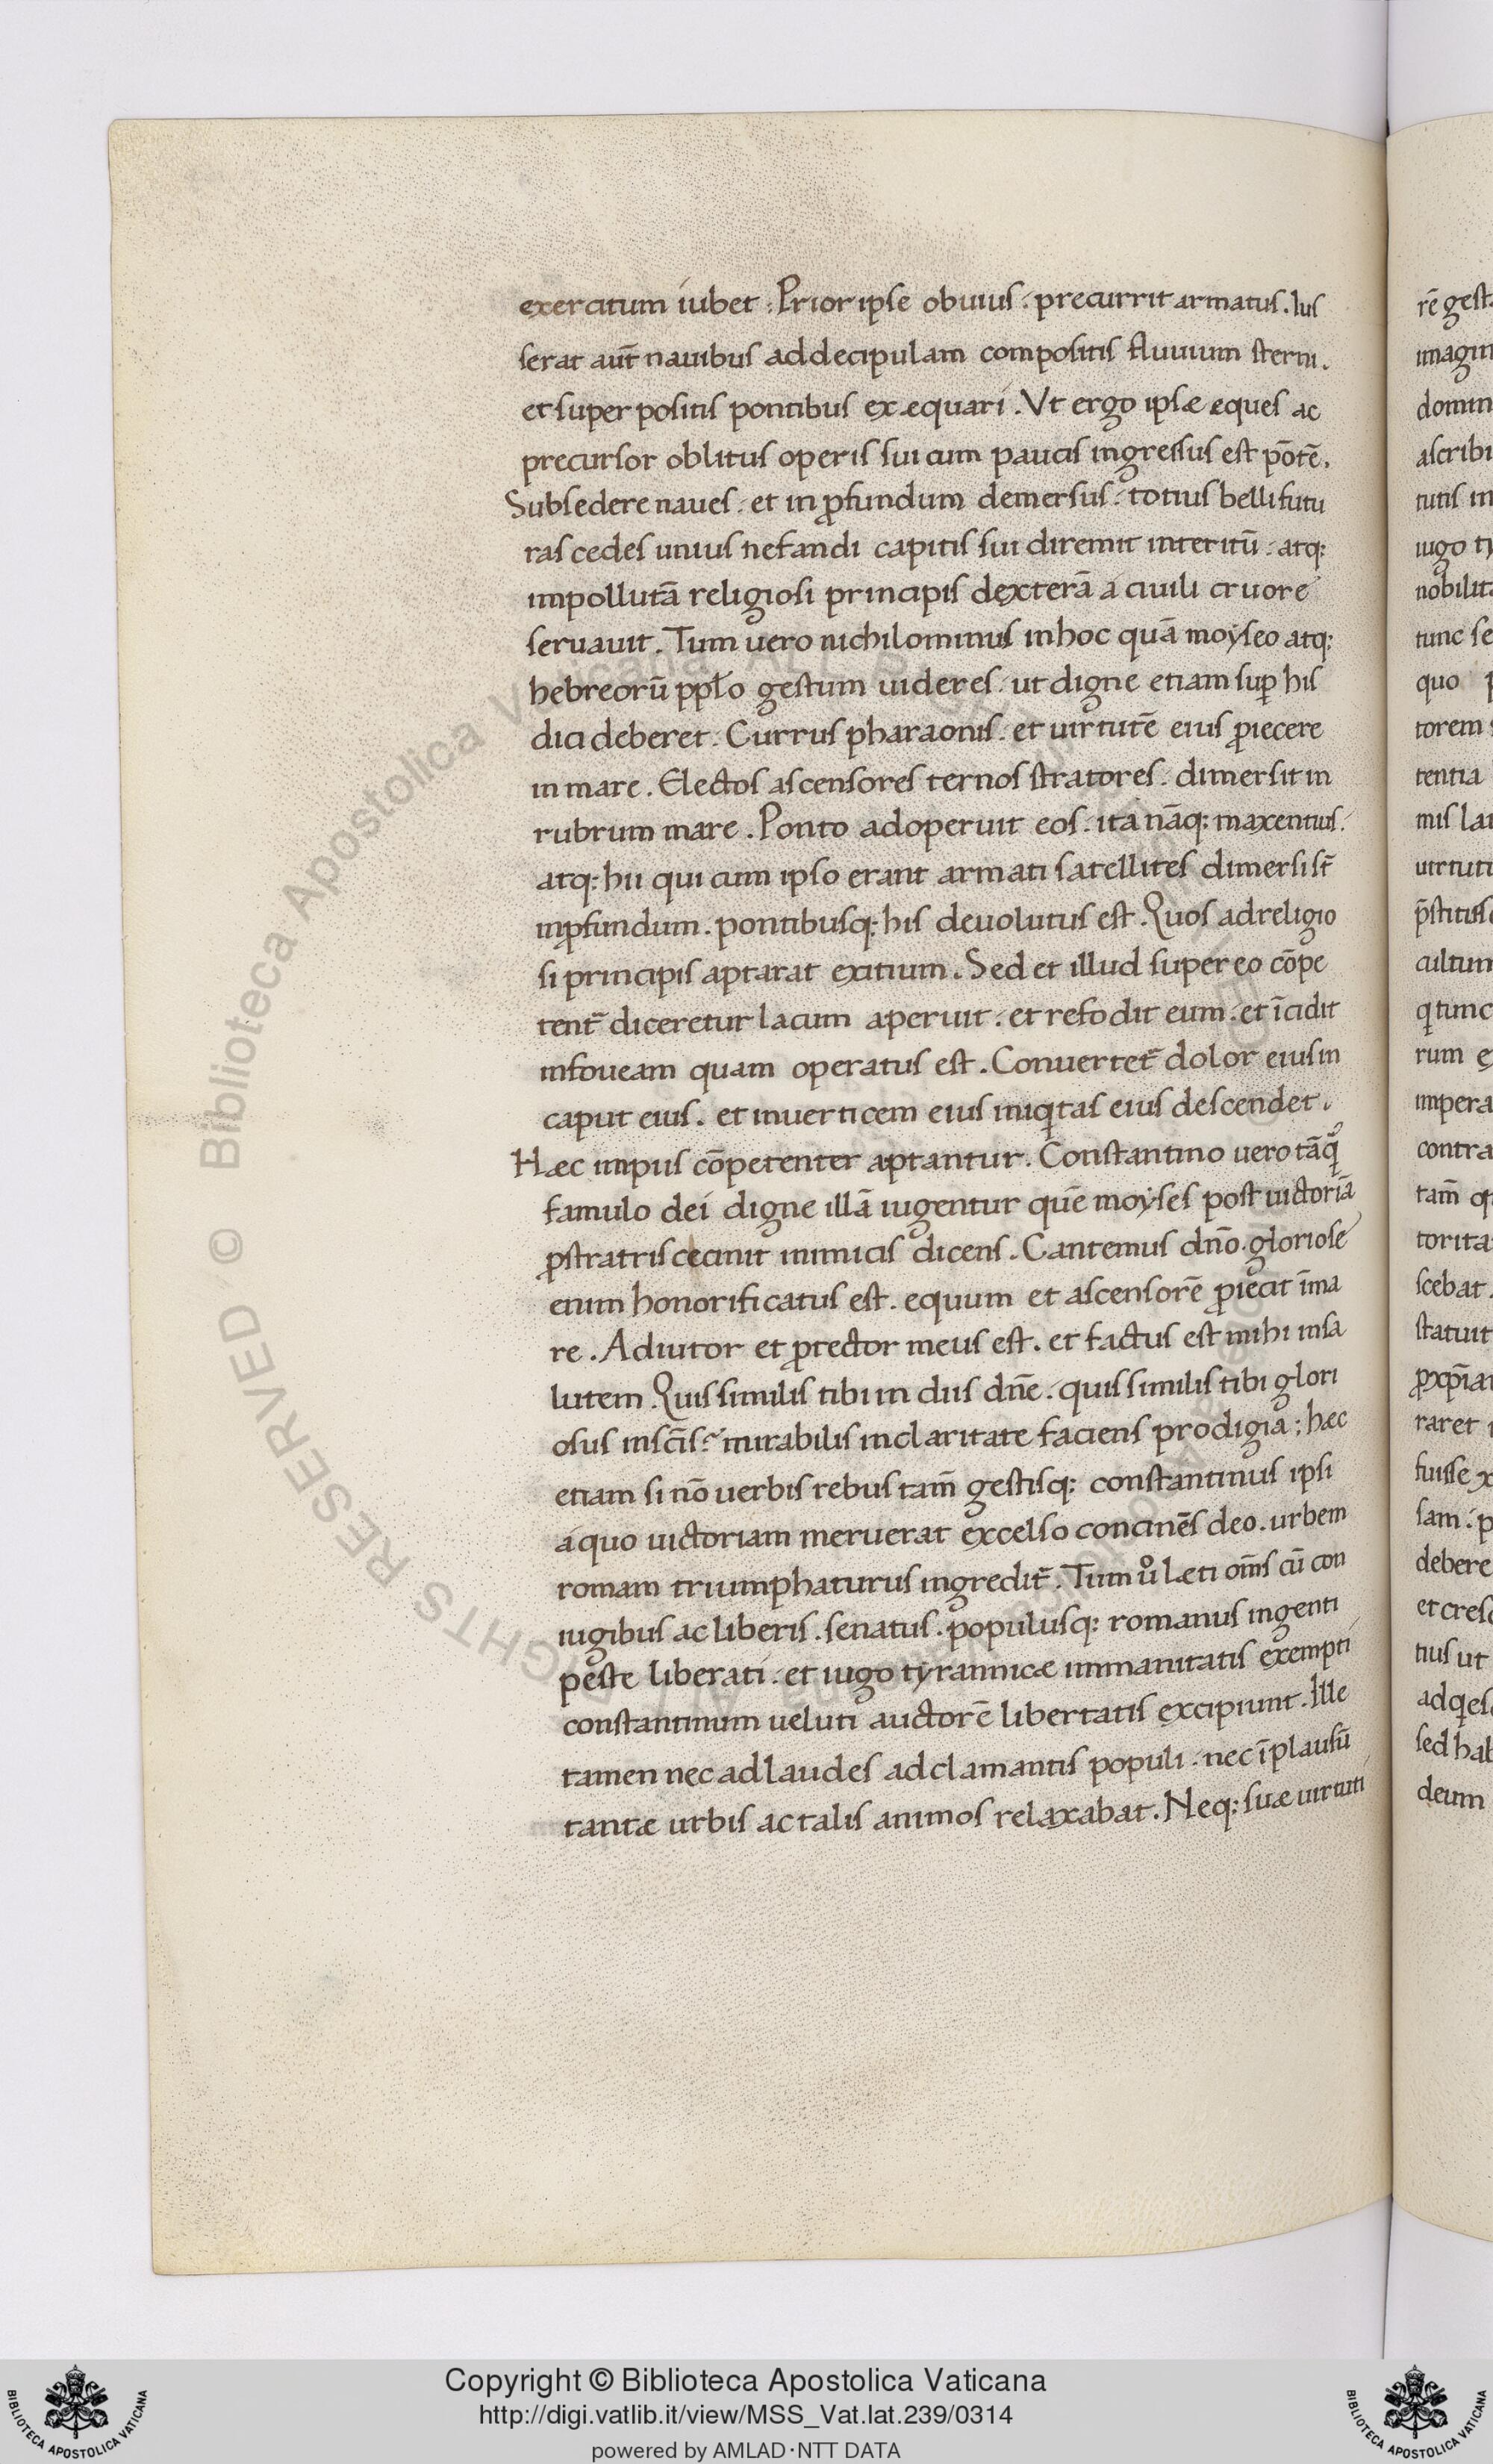 exercitum iubet. Prior ipse obuius. precurrit armatus. Ius
serat aut̄ nauibus ad decipulam compositis fluuium sterni.
et super positis pontibus ex equari. Vt ergo ipsæ eques ac
precursor oblitus operis sui cum paucis ingressus est pōtē.
Subsedere naues. et in ꝓfundum demersus. totius belli futu
ras cedes unius nefandi capitis sui diremit interitū. atq:
impollutā religiosi principis dexterā a ciuili cruore
seruauit. Tum uero nichilominus in hoc quā moyseo atq:
hebreorū ppło gestum uideres. ut digne etiam suꝑ his
dici deberet. Currus pharaonis. et uirtutē eius ꝓiecere
in mare. Electos ascensores ternos stratores. dimersit in
rubrum mare. Ponto adoperuit eos. ita nāq: maxentius.
atq: hii qui cum ipso erant armati satellites dimersi st̄
inꝓfundum. pontibusq: his deuolutus est. Quos ad religio
si principis aptarat exitium. Sed et illud super eo cōpe
tent̄ diceretur lacum aperuit. et refodit eum. et īcidit
in foueam quam operatus est. Conuertet̄ dolor eius in
caput eius. et in uerticem eius iniqͥtas eius descendet.
Hæc impiis cōpetenter aptantur. Constantino uero tāqͣ
famulo dei digne illā iugentur quē moyses post uictoriā
ꝓstratris cecinit inimicis dicens. Cantemus dn̄o. gloriose
enim honorificatus est. equum et ascensorē ꝓiecit īma
re. Adiutor et ꝓtector meus est. et factus est mihi insa
lutem. Quis similis tibi in diis dn̄e. quis similis tibi glori
osus in sc̄is? mirabilis in claritate faciens prodigia; hæc
etiam si nō uerbis rebus tam̄ gestisq: constantinus ipsi
a quo uictoriam meruerat excelso concinēs deo. urbem
romam triumphaturus ingredit̄. Tum uͦ læti om̄s cū con
iugibus ac liberis. senatus. populusq: romanus ingenti
peste liberati. et iugo tyrannicæ immanitatis exempti
constantinum ueluti auctorē libertatis excipiunt. Ille
tamen nec ad laudes adclamantis populi. nec īplausū
tantæ urbis ac talis animos relaxabat. Neq: suæ uirtuti
rē gest
imagin
domin
ascribi
tutis in
iugo ty
nobilit
tunc se
quo
torem
tentia
mis lau
uirtuti
p̄stitiss
cultum
qͥ tunc
rum
impera
contra
tam̄
torita
scebat.
statuit
ꝓxp̄ia
raret
fuisse
sam. p
debere
et cresc
tius ut
ad qͥes
sed hab
deum
© Biblioteca Apostolica Vaticana ALL RIGHTS RESERVED
Copyright © Biblioteca Apostolica Vaticana
http://digi.vatlib.it/view/MSS_Vat.lat.239/0314
powered by AMLAD·NTT DATA
BIBLIOTECA APOSTOLICA VATICANA
BIBLIOTECA APOSTOLICA VATICANA